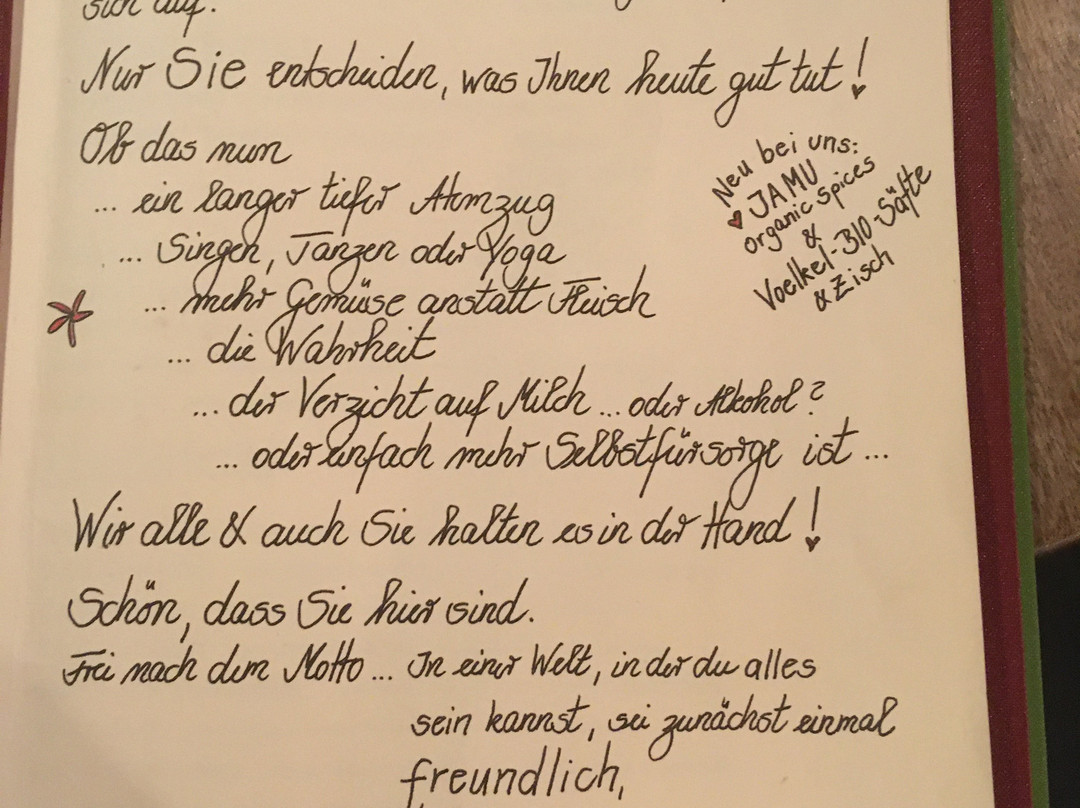 sich auf.
Nur Sie entscheiden, was Ihnen heute gut tut!
Ob das nun
... ein langer tiefer Atemzug
... Singen, Tanzen oder Yoga
... mehr Gemüse anstatt Fleisch
... die Wahrheit
... der Verzicht auf Milch ... oder Alkohol?
... oder einfach mehr Selbstfürsorge ist ...
Wir alle & auch Sie halten es in der Hand!
Schön, dass Sie hier sind.
Frei nach dem Motto ... In einer Welt, in der du alles
sein kannst, sei zunächst einmal
freundlich,
Neu bei uns:
JAMU
organic spices
&
Voelkel-BIO-Säfte
& Zisch